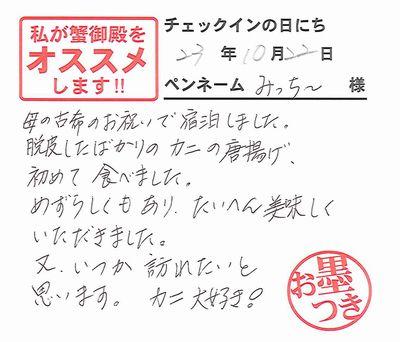 私が蟹御殿を
オススメ
します!!
チェックインの日にち
23年10月22日
ペンネーム みっち〜 様
母の古希のお祝いで宿泊しました。
脱皮したばかりのカニの唐揚げ、
初めて食べました。
めずらしくもあり、たいへん美味しく
いただきました。
又、いつか訪れたいと
思います。カニ大好き!
お墨つき